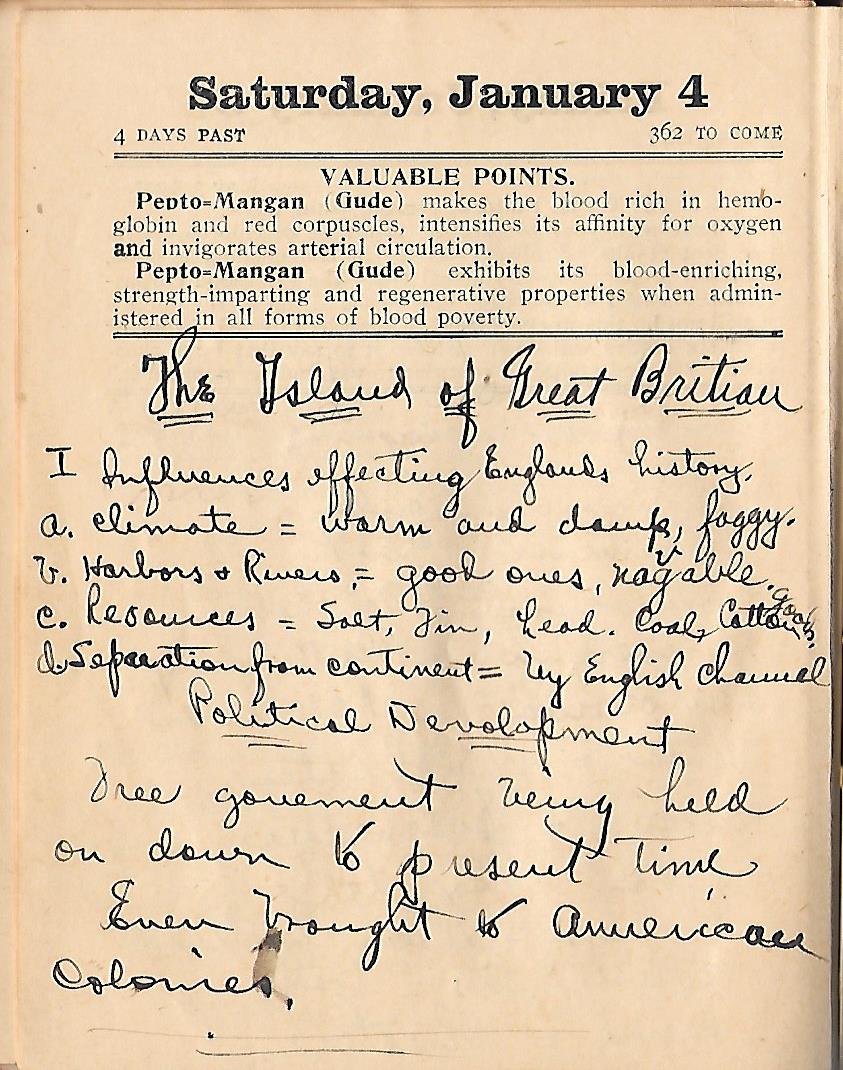 Saturday, January 4
4 DAYS PAST 362 TO COME
VALUABLE POINTS.
Pepto=Mangan (Gude) makes the blood rich in hemo-
globin and red corpuscles, intensifies its affinity for oxygen
and invigorates arterial circulation.
Pepto=Mangan (Gude) exhibits its blood-enriching,
strength-imparting and regenerative properties when admin-
istered in all forms of blood poverty.
The Island of Great Britian
I Influences effecting Englands history.
a. climate = warm and damp, foggy.
b. Harbors + Rivers, = good ones, nagvable.
c. Resources = Salt, Tin, Lead. Coal, Cotton goods.
d. Separation from continent = by English channel
Political Devolopment
Free goverment being held
on down to present time
Even brought to American
Colonies.